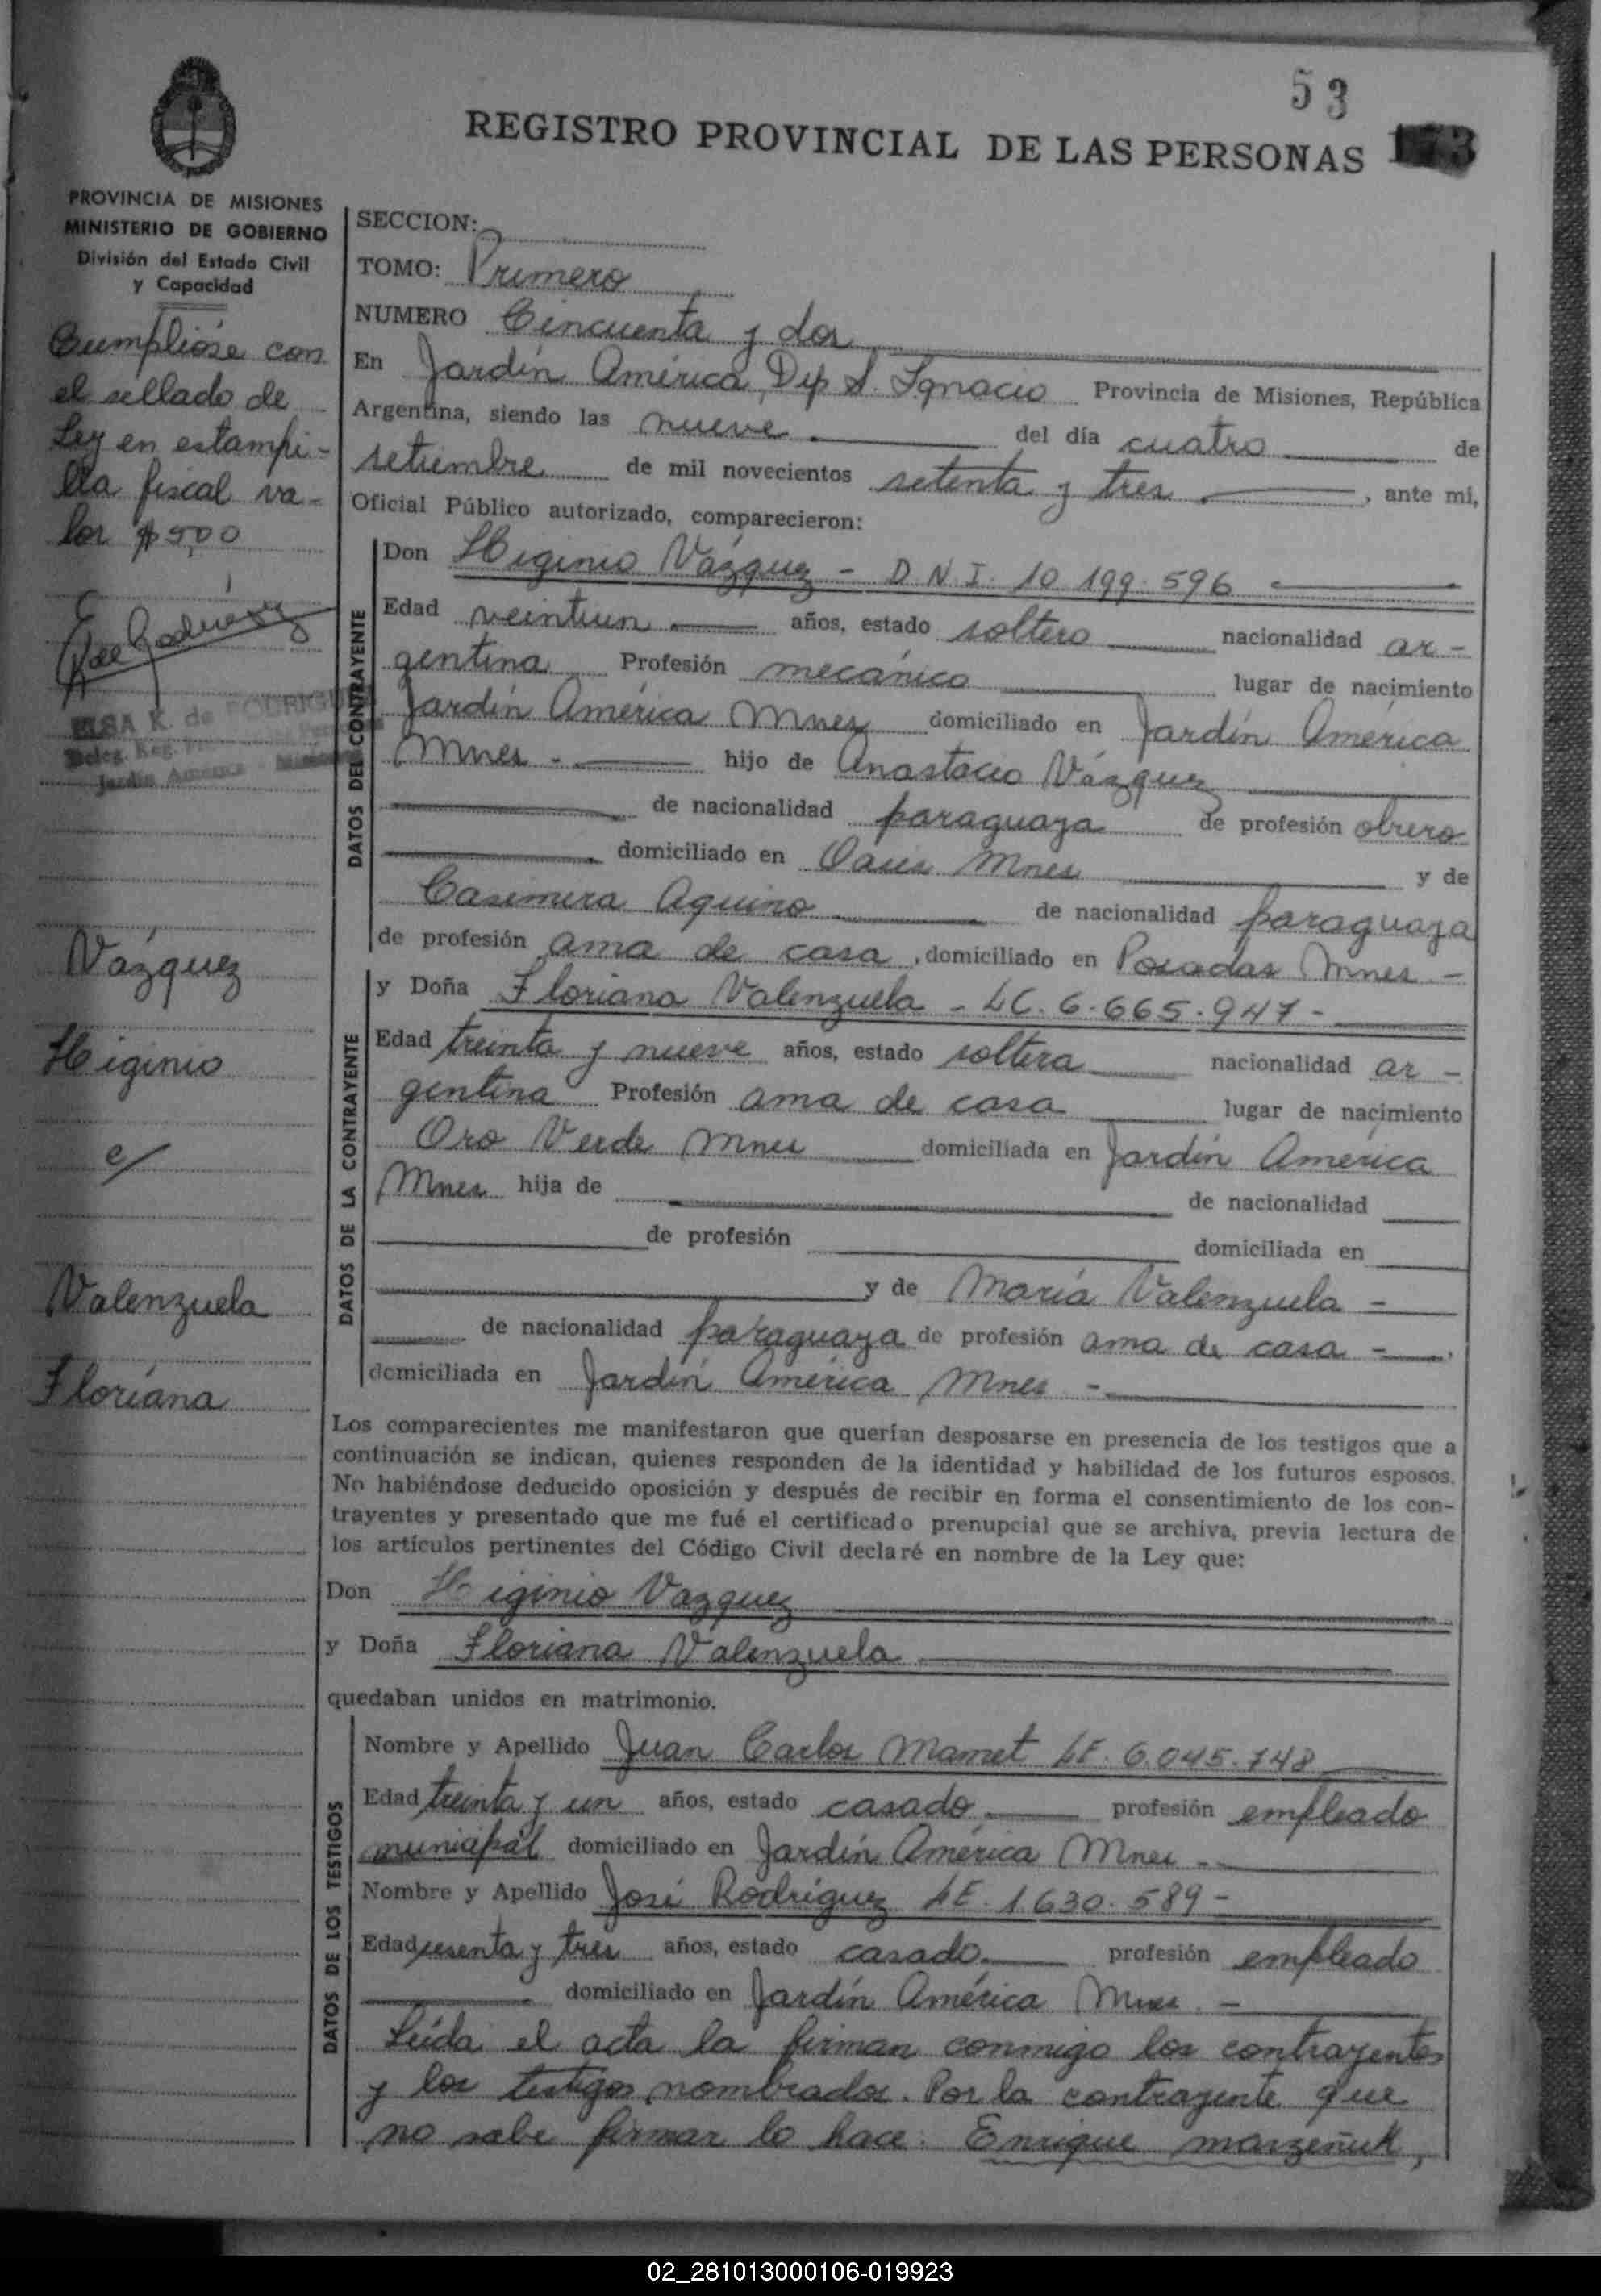 53
REGISTRO PROVINCIAL DE LAS PERSONAS 173
PROVINCIA DE MISIONES
MINISTERIO DE GOBIERNO
División del Estado Civil
y Capacidad
Cumplióse con
el sellado de
Ley en estampi-
lla fiscal va-
lor $ 5,00
ELSA K. de RODRIGUEZ
Deleg. Reg.
Jardín América - Misiones
Vázquez
Higinio
c/
Valenzuela
Floriana
SECCION:
TOMO: Primero
NUMERO Cincuenta y dos
En Jardín América, Dep S. Ignacio Provincia de Misiones, República
Argentina, siendo las nueve del día cuatro de
setiembre de mil novecientos setenta y tres, ante mi,
Oficial Público autorizado, comparecieron:
DATOS DEL CONTRAYENTE
Don Higinio Vázquez - D.N.I. 10.199.596
Edad veintiun años, estado soltero nacionalidad ar-
gentina Profesión mecánico lugar de nacimiento
Jardín América Mnes domiciliado en Jardín América
Mnes - hijo de Anastacio Vázquez
de nacionalidad paraguaya de profesión obrero
domiciliado en Oasis Mnes y de
Casimira Aquino de nacionalidad paraguaya
de profesión ama de casa, domiciliado en Posadas Mnes. -
DATOS DE LA CONTRAYENTE
y Doña Floriana Valenzuela - LC. 6.665.947 -
Edad treinta y nueve años, estado soltera nacionalidad ar-
gentina Profesión ama de casa lugar de nacimiento
Oro Verde Mnes domiciliada en Jardín América
Mnes hija de de nacionalidad
de profesión domiciliada en
y de María Valenzuela -
de nacionalidad paraguaya de profesión ama de casa -
domiciliada en Jardín América Mnes -
Los comparecientes me manifestaron que querían desposarse en presencia de los testigos que a
continuación se indican, quienes responden de la identidad y habilidad de los futuros esposos.
No habiéndose deducido oposición y después de recibir en forma el consentimiento de los con-
trayentes y presentado que me fué el certificado prenupcial que se archiva, previa lectura de
los artículos pertinentes del Código Civil declaré en nombre de la Ley que:
Don Higinio Vazquez
y Doña Floriana Valenzuela
quedaban unidos en matrimonio.
DATOS DE LOS TESTIGOS
Nombre y Apellido Juan Carlos Mamet LE. 6.045.748
Edad treinta y un años, estado casado profesión empleado
municipal domiciliado en Jardín América Mnes -
Nombre y Apellido José Rodríguez LE. 1.630.589 -
Edad sesenta y tres años, estado casado profesión empleado
domiciliado en Jardín América Mnes. -
Leída el acta la firman conmigo los contrayentes
y los testigos nombrados. Por la contrayente que
no sabe firmar lo hace. Enrique
02_281013000106-019923